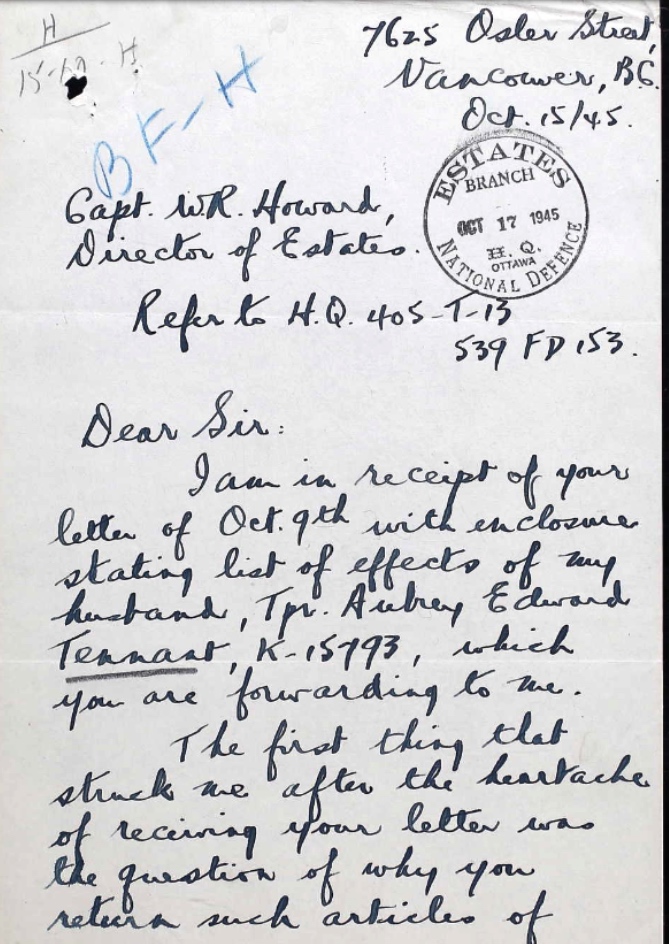 H
15-10-H
BF-H
7625 Osler Street,
Vancouver, B.C.
Oct. 15/45.
ESTATES
BRANCH
OCT 17 1945
H. Q.
OTTAWA
NATIONAL DEFENCE
Capt. W.R. Howard,
Director of Estates.
Refer to H.Q. 405-T-13
539 FD 153.
Dear Sir:
I am in receipt of your
letter of Oct. 9th with enclosure
stating list of effects of my
husband, Tpr. Aubrey Edward
Tennant, K-15793, which
you are forwarding to me.
The first thing that
struck me after the heartache
of receiving your letter was
the question of why you
return such articles of